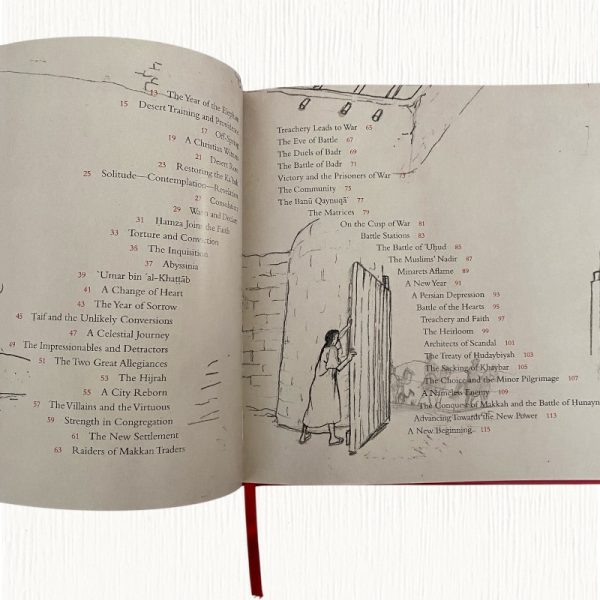 13 The Year of the Elephant
15 Desert Training and Providence
17 Off-Spring
19 A Christian
21 Desert
23 Restoring the Ka'bah
25 Solitude—Contemplation—Revelation
27 Consolation
29 Warn and Declare
31 Ḥamza Joins the Faith
33 Torture and Conviction
35 The Inquisition
37 Abyssinia
39 'Umar bin 'al-Khaṭṭāb
41 A Change of Heart
43 The Year of Sorrow
45 Ṭaif and the Unlikely Conversions
47 A Celestial Journey
49 The Impressionables and Detractors
51 The Two Great Allegiances
53 The Hijrah
55 A City Reborn
57 The Villains and the Virtuous
59 Strength in Congregation
61 The New Settlement
63 Raiders of Makkan Traders
Treachery Leads to War 65
The Eve of Battle 67
The Duels of Badr 69
The Battle of Badr 71
Victory and the Prisoners of War 73
The Community 75
The Banū Qaynuqā' 77
The Matrices 79
On the Cusp of War 81
Battle Stations 83
The Battle of 'Uḥud 85
The Muslims' Nadir 87
Minarets Aflame 89
A New Year 91
A Persian Depression 93
Battle of the Hearts 95
Treachery and Faith 97
The Heirloom 99
Architects of Scandal 101
The Treaty of Ḥudaybiyah 103
The Sacking of Khaybar 105
The Choice and the Minor Pilgrimage 107
A Nameless Enemy 109
The Conquest of Makkah and the Battle of Ḥunayn
Advancing Towards the New Power 113
A New Beginning 115